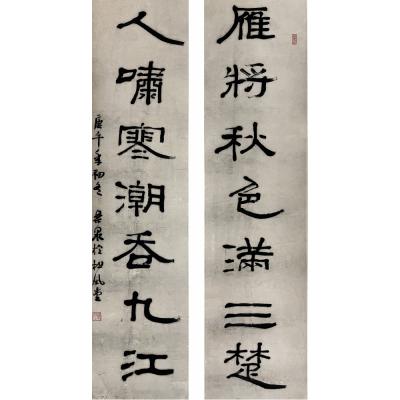 雁将秋色满三楚
人啸寒潮吞九江
庚午年初冬